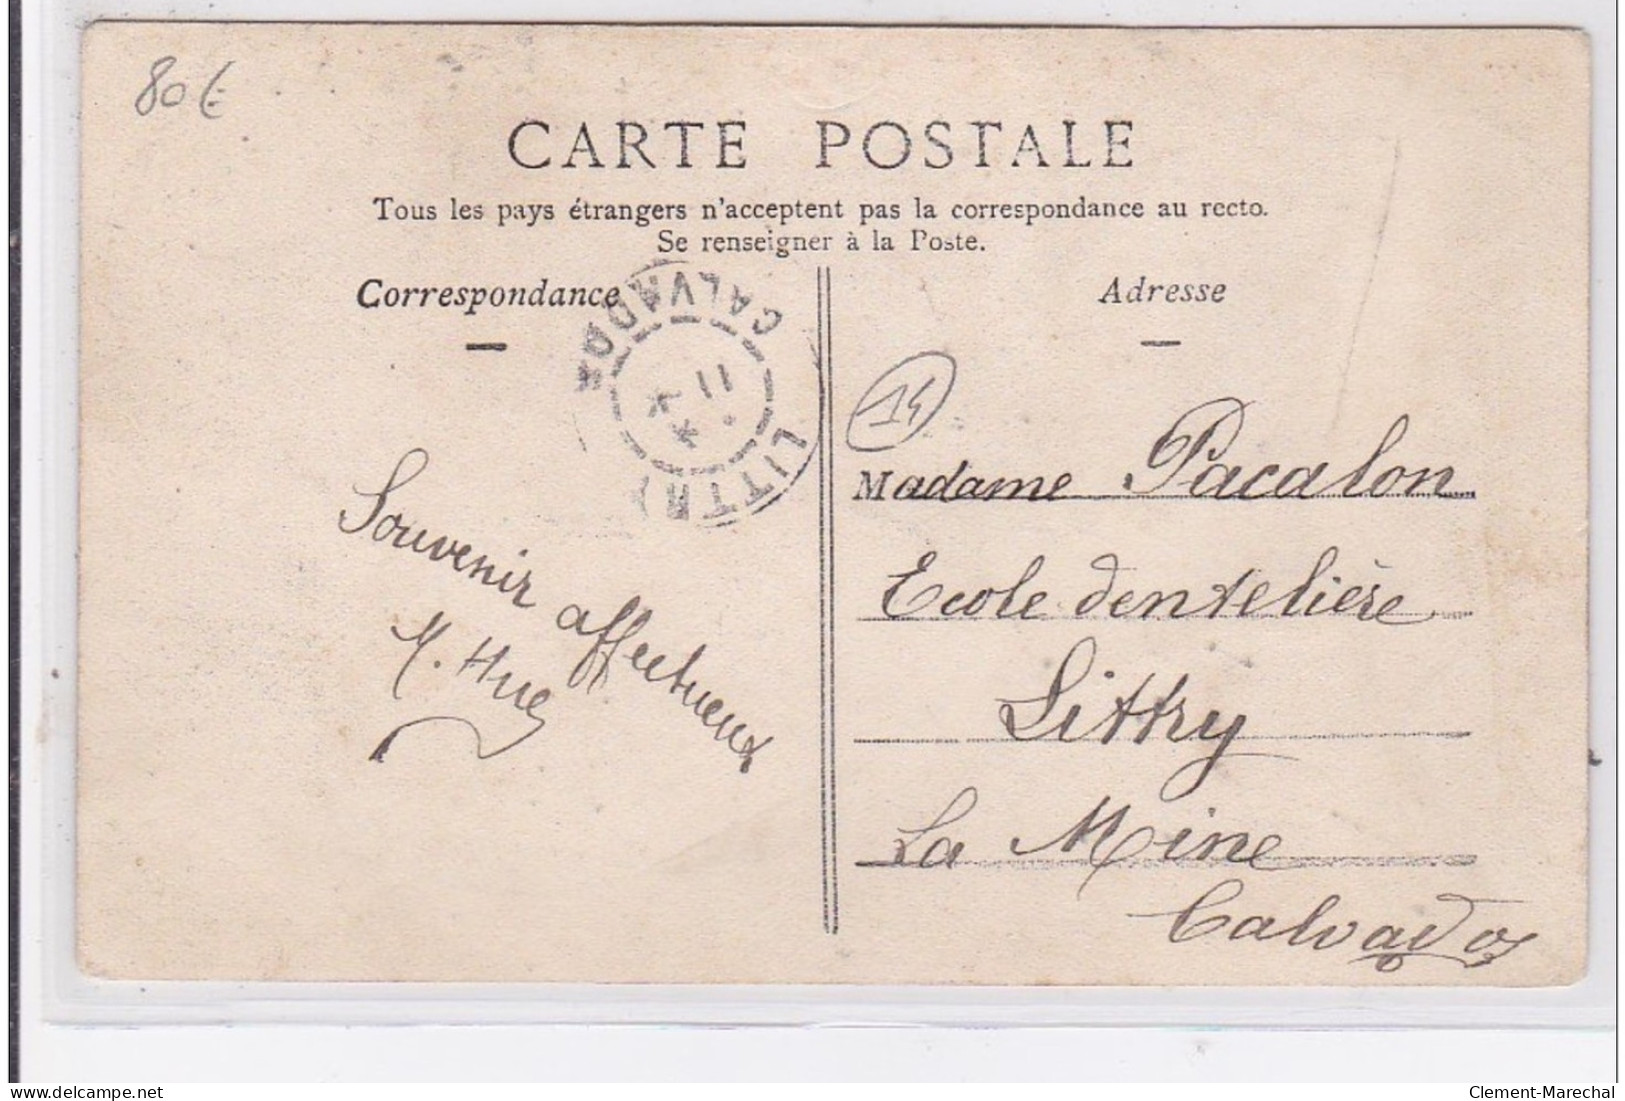 80€
CARTE POSTALE
Tous les pays étrangers n'acceptent pas la correspondance au recto.
Se renseigner à la Poste.
Correspondance
Adresse
CALVADOS
11
LITTRY
14
Souvenir affectueux
M. Hue
Madame Pacalon
Ecole dentelière
Littry
La Mine
Calvados
delcampe.net
Clement-Marechal